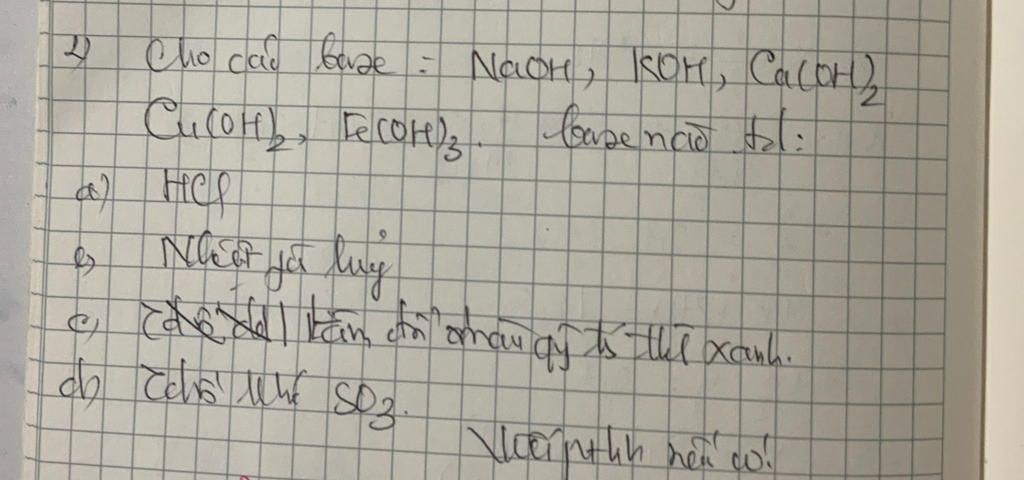 2) Cho các base : NaOH, KOH, Ca(OH)2
Cu(OH)2, Fe(OH)3. base nào td:
a) HCl
b) Nhiệt gì hủy
c) làm đổi màu quỳ tím thành xanh.
d) Tdvs khí SO3.
Viết pthh nếu có!